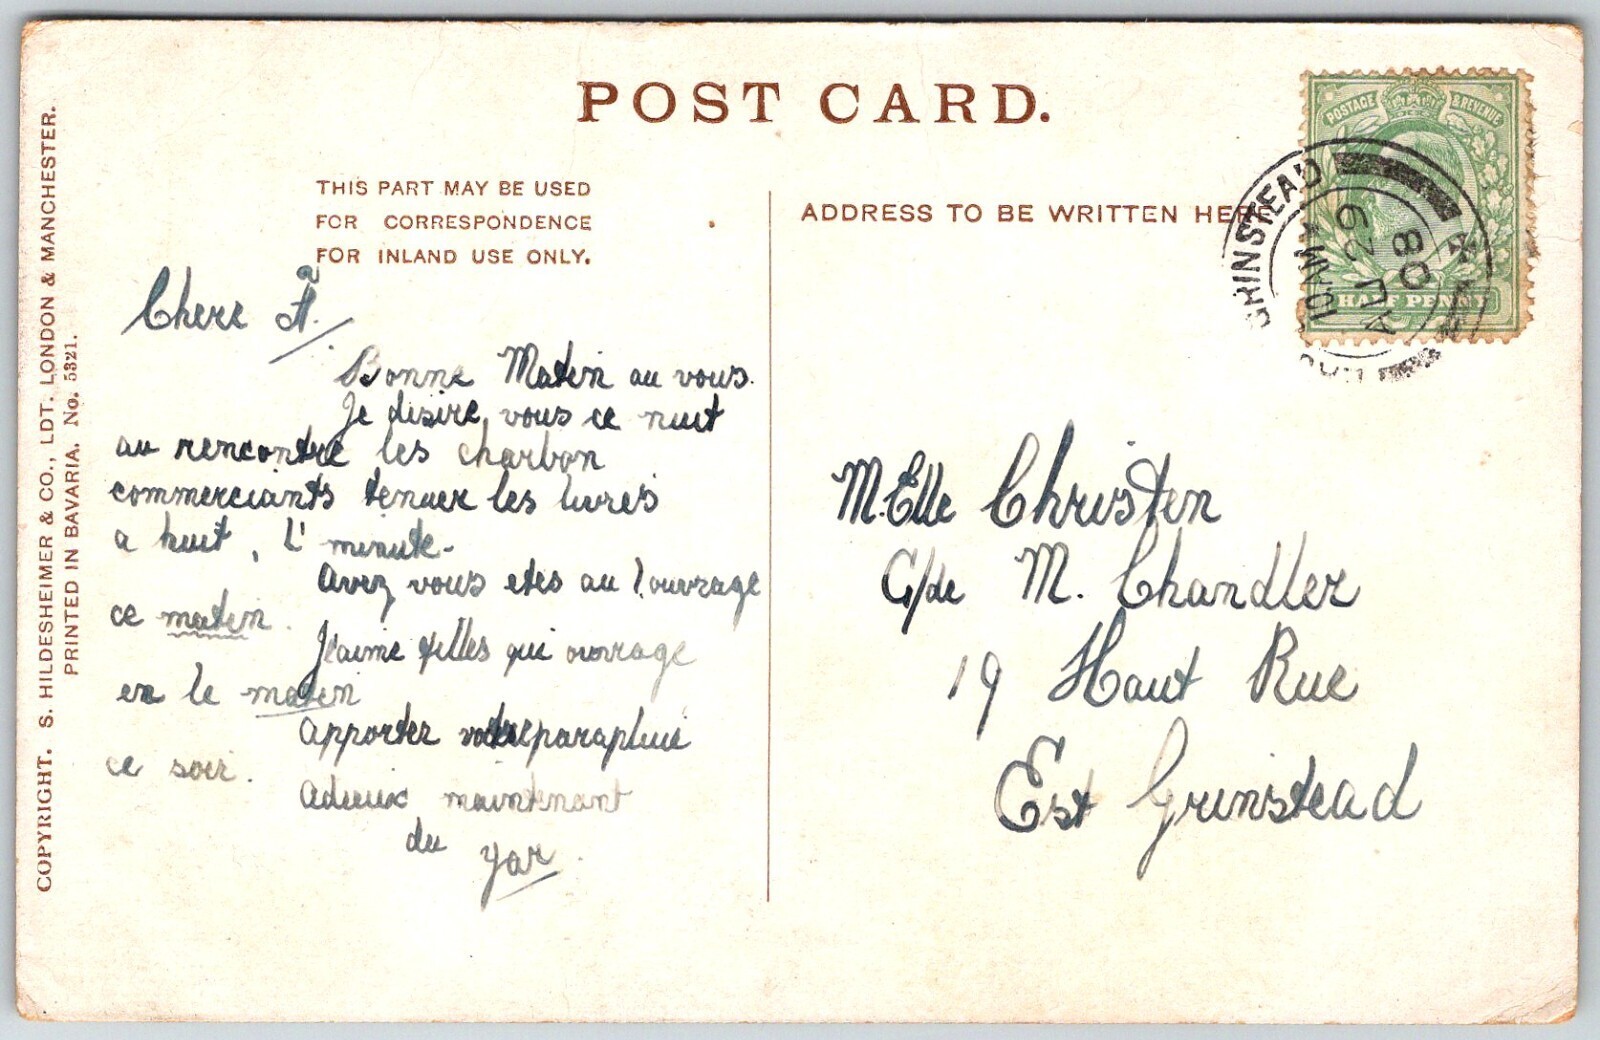 POST CARD.
THIS PART MAY BE USED
FOR CORRESPONDENCE
FOR INLAND USE ONLY.
ADDRESS TO BE WRITTEN HERE
COPYRIGHT. S. HILDESHEIMER & CO., LDT. LONDON & MANCHESTER.
PRINTED IN BAVARIA. No. 5321.
POSTAGE & REVENUE
HALF PENNY
GRINSTEAD
10 AM
AU 29
08
Chere A.
Bonne Maten au vous.
Je disire vous ce nuit
au rencontre les charbon
commerciants tenuer les livres
a huit, L' minute-
Avez vous etes au l'ouvrage
ce maten.
J'eaime filles qui ouvrage
en le maten
Apportez votre parapluie
ce soir.
Adieux maintenant
du yar
M.Elle Christen
C/de M. Chandler
19 Haut Rue
Est Grinstead